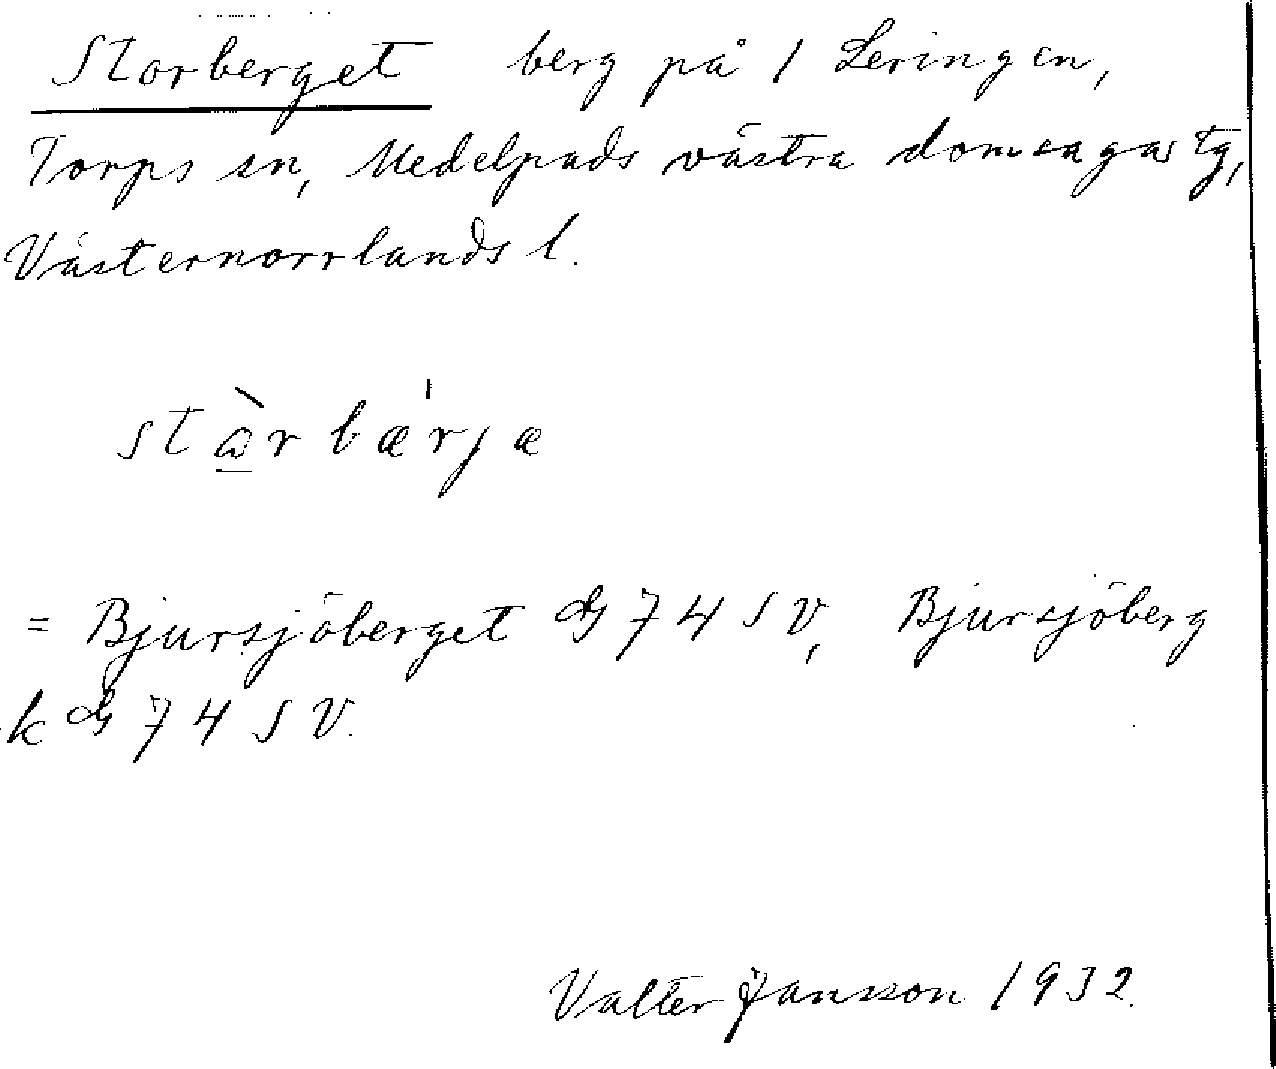 Storberget berg på 1 Leringen,
Torps sn, Medelpads västra domsagas tg,
Västernorrlands l.
stàrbærjæ
= Bjursjöberget 74 SV, Bjursjöberg
k 74 SV.
Valter Jansson 1932.